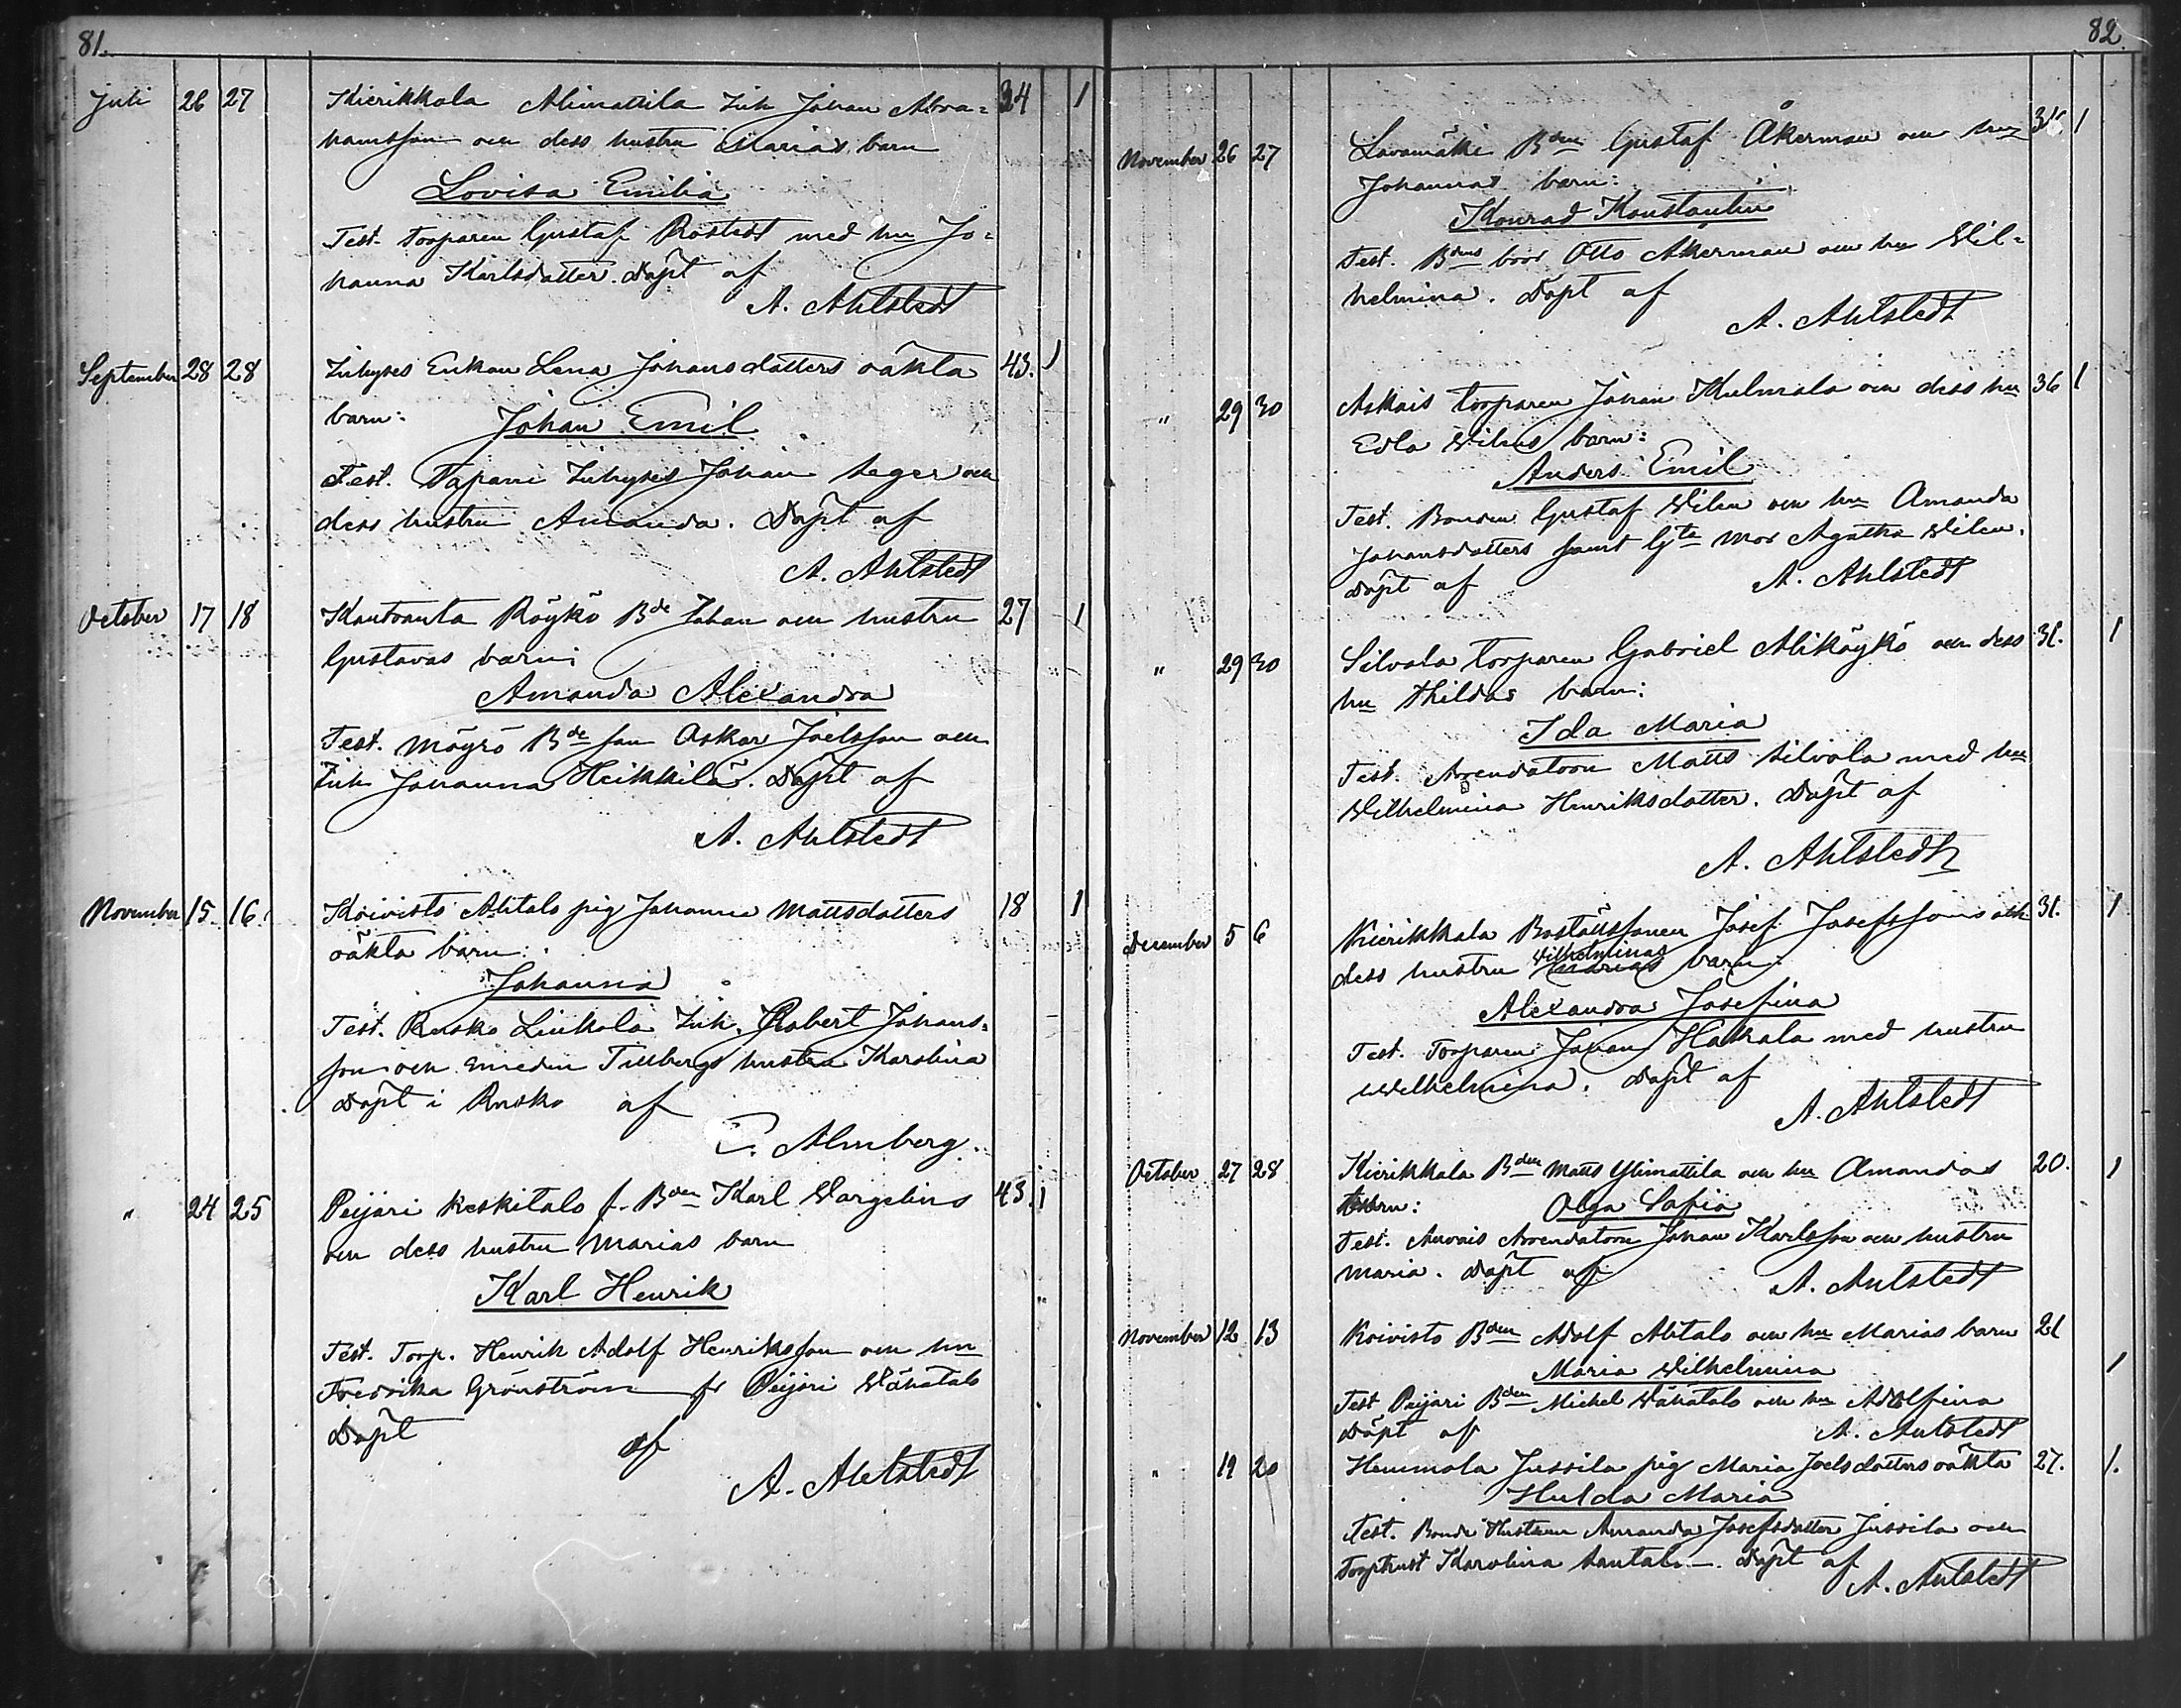 81.
Juli 26 27 Kierikkala Alimattila Inh Johan Abra= 34 1
hamsson och dess hustru Marias barn
Lovisa Emilia
Test. torparen Gustaf Rostedt med hu Jo=
hanna Karlsdotter. Döpt af
A. Ahlstedt
September 28 28 Inhyses Enkan Lena Johansdotters oäkta 43. 1
barn: Johan Emil
Test. Tapani Inhyses Johan Seger och
dess hustru Amanda. Döpt af
A. Ahlstedt
October 17 18 Kantvanta Röykö Bde Johan och hustru 27 1
Gustavas barn:
Amanda Alexandra
Test. Möyrö Bde son Oskar Joelsson och
Inh Johanna Heikkilä. Döpt af
A. Ahlstedt
November 15. 16. Koivisto Ahtalo pig Johanna Mattsdotters 18 1
oäkta barn:
Johanna
Test. Rusko Liukola Inh. Robert Johans=
son och smeden Tillbergs hustru Karolina
Döpt i Rusko af
Almberg.
" 24 25 Peijari Keskitalo f. Bden Karl Wargelins 43. 1
och dess hustru Marias barn
Karl Henrik
Test. Torp. Henrik Adolf Henriksson och hu
Fredrika Grönström fr Peijari Wähätalo
Döpt af
A. Ahlstedt
82.
November 26 27 Lavamäki Bden Gustaf Åkerman och hu 35 1
Johannas barn:
Konrad Konstantin
Test. Bdens bror Otto Åkerman och hu Wil=
helmina. Döpt af
A. Ahlstedt
" 29 30 Askais torparen Johan Kulmala och dess hu 36 1
Edla Wilens barn:
Anders Emil
Test. Bonden Gustaf Wilen och hu Amanda
Johansdotters samt Gta mor Agatha Wilen.
Döpt af A. Ahlstedt
" 29 30 Silvola torparen Gabriel Aliköykö och dess 31. 1
hu Thildas barn:
Ida Maria
Test. Arrendatorn Matts Silvola med hu
Wilhelmina Henriksdotter. Döpt af
A. Ahlstedt
December 5 6 Kierikkala Boställssonen Josef Josefssons och 31. 1
dess hustru Wilhelminas Marias barn:
Alexandra Josefina
Test. Torparen Johan Hakala med hustru
Wilhelmina. Döpt af
A. Ahlstedt
October 27 28 Kierikkala Bden Matts Ylimattila och hu Amandas 20. 1
barn: Olga Sofia
Test. Arrendatorn Johan Karlsson och hustru
Maria. Döpt af A. Ahlstedt
November 12 13 Koivisto Bden Adolf Ahtalo och hu Marias barn 21
Maria Wilhelmina 1
Test Peijari Bden Michel Wähätalo och hu Adolfina
Döpt af A. Ahlstedt
" 19 20 Hemmola Jussila pig Maria Joelsdotters oäkta 27. 1.
Hulda Maria
Test. Bonde Hustrun Amanda Josefsdotter Jussila och
Torphust Karolina Santala. Döpt af A. Ahlstedt